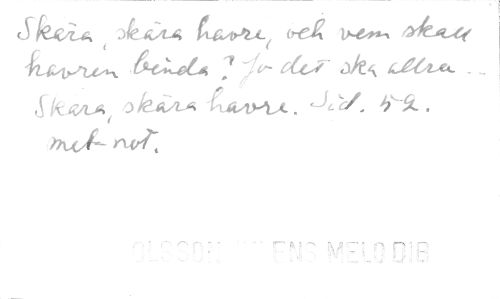 Skära, skära havre, och vem skall
havren binda? Jo det ska allra ...
Skära, skära havre. Sid. 52.
mel-not.
OLSSON ENS MELODIB